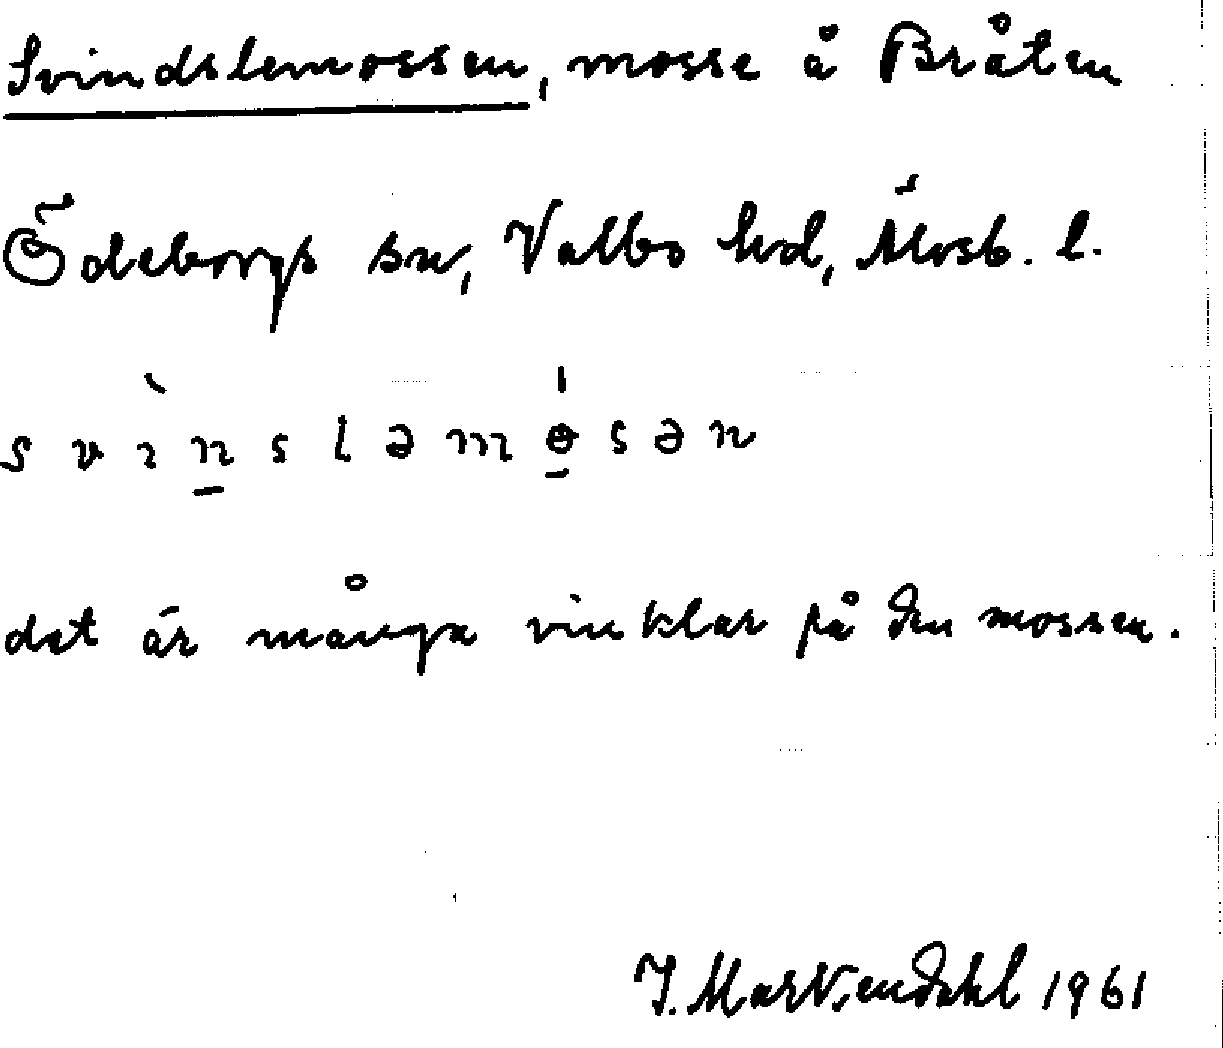 Svindslemossen, mosse å Bråten
Ödeborgs sn, Valbo hd, Älvsb. l.
svìn̠sləmɵ̠́sən
det är många vinklar på den mossen.
J. Martinendahl 1961